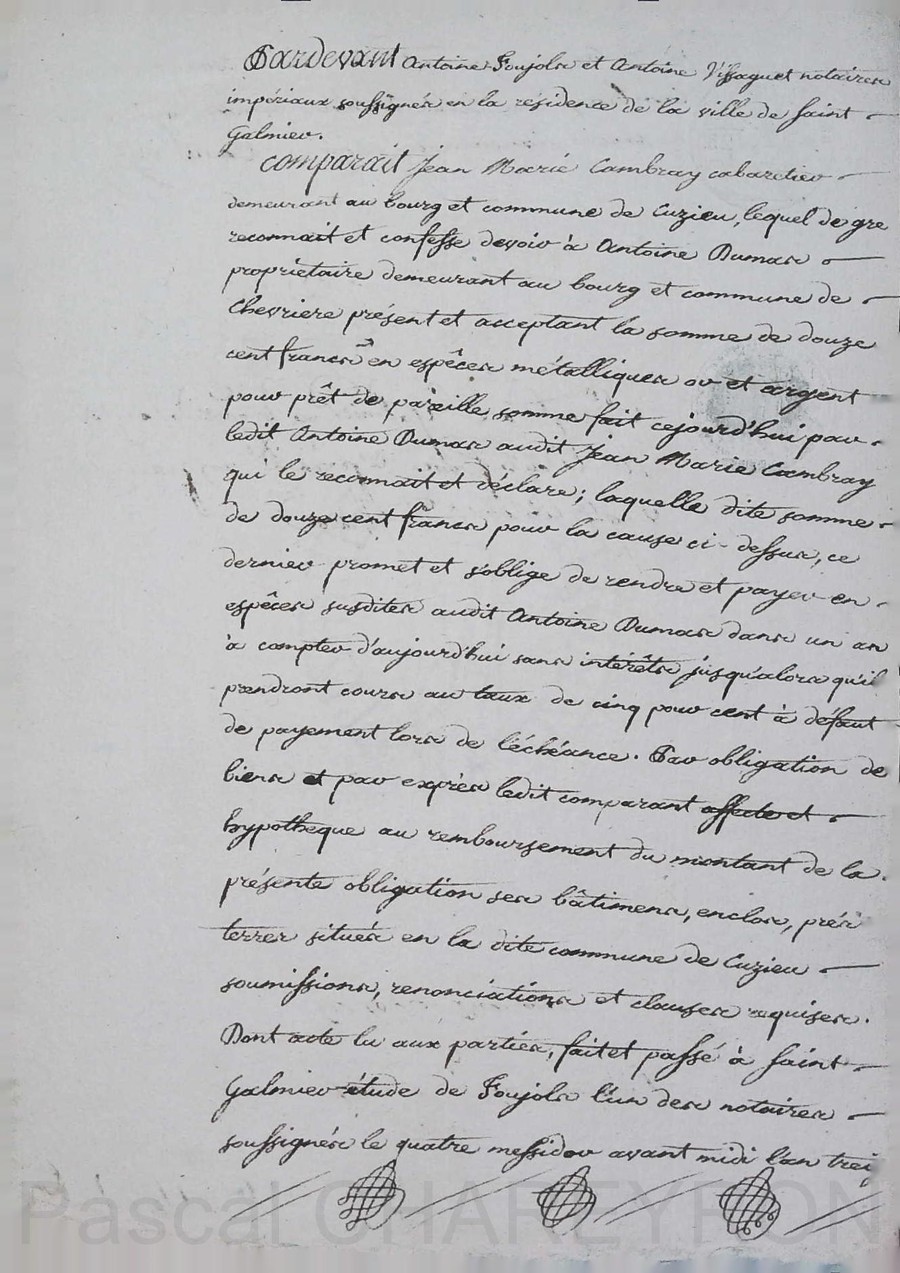 Pardevant Antoine Foujols et Antoine Vissaguet notaires
impériaux soussignés en la résidence de la ville de saint
Galmier.
comparait Jean Marie Cambray cabaretier
demeurant au bourg et commune de Cuzieu, lequel de gre
reconnait et confesse devoir à Antoine Dumas
propriétaire demeurant au bourg et commune de
Chevriere présent et acceptant la somme de douze
cent francs en espèces métalliques or et argent
pour prêt de pareille somme fait cejourd'hui par
ledit Antoine Dumas audit Jean Marie Cambray
qui le reconnait et déclare; laquelle dite somme
de douze cent francs pour la cause ci-dessus, ce
dernier promet et s'oblige de rendre et payer en
espèces susdites audit Antoine Dumas dans un an
à compter d'aujourd'hui sans intérêts jusqu'alors qu'il
prendront cours au taux de cinq pour cent à défaut
de payement lors de l'échéance. Par obligation de
biens et par exprès ledit comparant affecte et
hypotheque au remboursement du montant de la
présente obligation ses bâtimens, enclos, prés
terres situés en la dite commune de Cuzieu
soumissions, renonciations et clauses requises.
Dont acte lu aux parties, fait et passé à saint
Galmier étude de Foujols l'un des notaires
soussignés le quatre messidor avant midi l'an trei
Pascal CHAREYRON